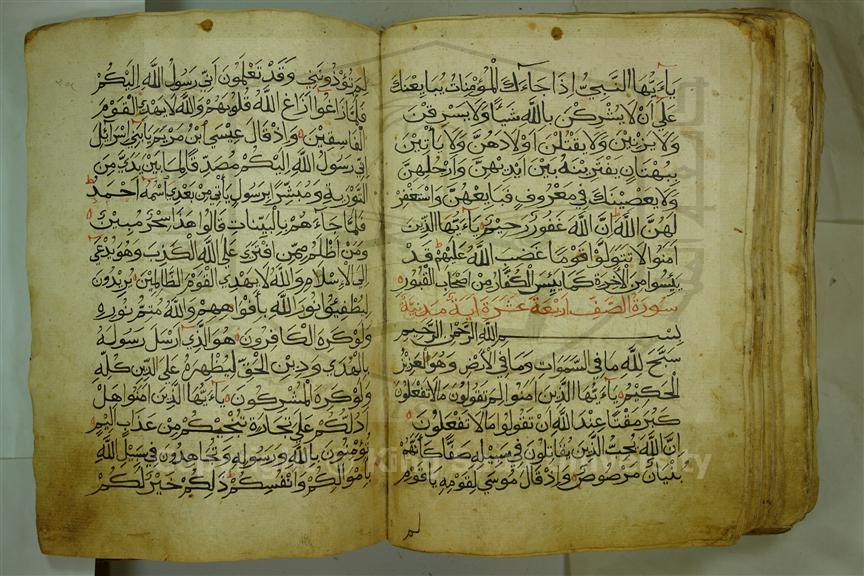 يا ءيها النبي اذا جاءك المؤمنات يبايعنك
على ان لا يشركن بالله شيأ ولا يسرقن
ولا يزنين ولا يقتلن اولادهن ولا يأتين
ببهتان يفترينه بين ايديهن وارجلهن
ولا يعصينك في معروف فبايعهن واستغفر
لهن الله ان الله غفور رحيم يا ءيها الذين
امنوا لا تتولوا قوما غضب الله عليهم قد
يئسوا من الاخرة كما يئس الكفار من اصحاب القبور
سورة الصف اربعة عشرة آية مدنية
بسم الله الرحمن الرحيم
سبح لله ما في السموات وما في الارض وهو العزيز
الحكيم يا ءيها الذين امنوا لم تقولون ما لا تفعلون
كبر مقتا عند الله ان تقولوا ما لا تفعلون
ان الله يحب الذين يقاتلون في سبيله صفا كانهم
بنيان مرصوص واذ قال موسى لقومه يا قوم
لم
لم تؤذونني وقد تعلمون اني رسول الله اليكم
فلما زاغوا ازاغ الله قلوبهم والله لا يهدي القوم
الفاسقين واذ قال عيسى ابن مريم يا بني اسرائل
اني رسول الله اليكم مصدقا لما بين يدي من
التورية ومبشرا برسول يأتي من بعدي اسمه احمد
فلما جاءهم بالبينات قالوا هذا سحر مبين
ومن اظلم ممن افترى على الله الكذب وهو يدعى
الى الاسلام والله لا يهدي القوم الظالمين يريدون
ليطفئوا نور الله بافواههم والله متم نوره
ولو كره الكافرون هو الذي ارسل رسوله
بالهدى ودين الحق ليظهره على الدين كله
ولو كره المشركون يا ءيها الذين امنوا هل
ادلكم على تجارة تنجيكم من عذاب اليم
تؤمنون بالله ورسوله وتجاهدون في سبيل الله
باموالكم وانفسكم ذلكم خير لكم